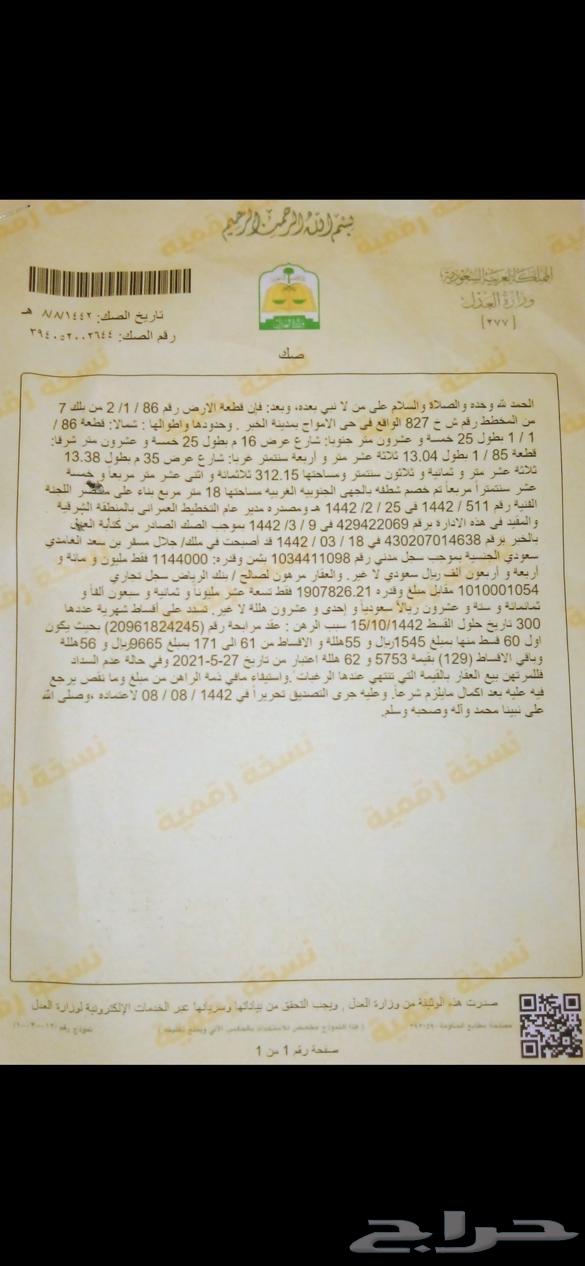 بسم الله الرحمن الرحيم
المملكة العربية السعودية
وزارة العدل
[٢٧٧]
تاريخ الصك: ١٤٤٢/٨/٨ هـ
رقم الصك: ٣٩٤٠٥٢٠٠٢٦٤٤
صك
الحمد لله وحده والصلاة والسلام على من لا نبي بعده، وبعد: فإن قطعة الارض رقم 86 /1 /2 من بلك 7
من المخطط رقم ش خ 827 الواقع في حى الامواج بمدينة الخبر . وحدودها واطوالها : شمالا: قطعة 86 /
1 / 1 بطول 25 خمسة و عشرون متر جنوبا: شارع عرض 16 م بطول 25 خمسة و عشرون متر شرقا:
قطعة 85 / 1 بطول 13.04 ثلاثة عشر متر و أربعة سنتمتر غربا: شارع عرض 35 م بطول 13.38
ثلاثة عشر متر و ثمانية و ثلاثون سنتمتر ومساحتها 312.15 ثلاثمائة و اثنى عشر متر مربعاً و خمسة
عشر سنتمتراً مربعاً تم خصم شطفه بالجهى الجنوبيه الغربية مساحتها 18 متر مربع بناء على اللجنة
الفنية رقم 511 / 1442 في 25 / 2 / 1442 هـ ومصدره مدير عام التخطيط العمراني بالمنطقة الشرقية
والمقيد في هذه الاداره برقم 429422069 في 9 / 3 / 1442 بموجب الصك الصادر من كتابة العدل
بالخبر برقم 430207014638 في 18 / 03 / 1442 قد أصبحت في ملك/ جلال مسفر بن سعد الغامدي
سعودي الجنسية بموجب سجل مدني رقم 1034411098 بثمن وقدره: 1144000 فقط مليون و مائة و
أربعة و أربعون ألف ريال سعودي لا غير. والعقار مرهون لصالح / بنك الرياض سجل تجاري
1010001054 مقابل مبلغ وقدره 1907826.21 فقط تسعة عشر مليوناً و ثمانية و سبعون ألفاً و
ثمانمائة و ستة و عشرون ريالاً سعودياً و إحدى و عشرون هللة لا غير. تسدد على أقساط شهرية عددها
300 تاريخ حلول القسط 15/10/1442 سبب الرهن : عقد مرابحة رقم (20961824245) بحيث يكون
اول 60 قسط منها بمبلغ 1545ريال و 55هللة و الاقساط من 61 الى 171 بمبلغ 9665ريال و 56هللة
وباقي الاقساط (129) بقيمة 5753 و 62 هللة اعتبار من تاريخ 27-5-2021 وفي حالة عدم السداد
فللمرتهن بيع العقار بالقيمة التي تنتهي عندها الرغبات .واستيفاء مافي ذمة الراهن من مبلغ وما نقص يرجع
فيه عليه بعد اكمال مايلزم شرعاً. وعليه جرى التصديق تحريراً في 08 / 08 / 1442 لاعتماده ،وصلى الله
على نبينا محمد وآله وصحبه وسلم.
نسخة رقمية
صدرت هذه الوثيقة من وزارة العدل , ويجب التحقق من بياناتها وسريانها عبر الخدمات الإلكترونية لوزارة العدل
صفحة رقم 1 من 1
حراج